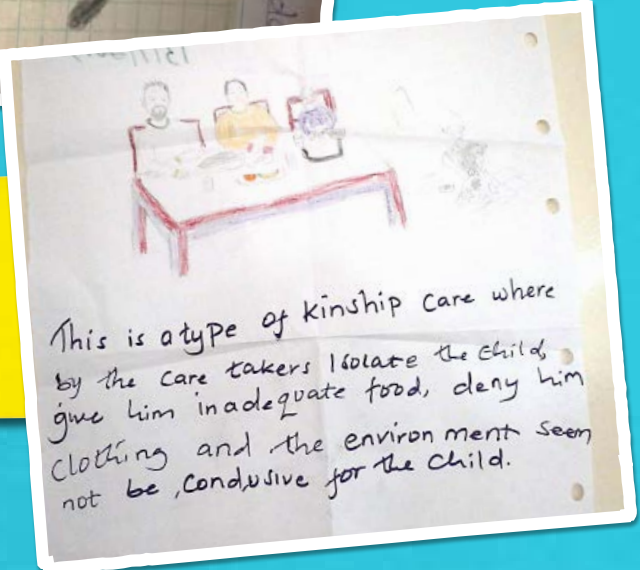 This is a type of kinship care where
by the care takers Isolate the child,
give him inadequate food, deny him
clothing and the environment seem
not be, condusive for the child.